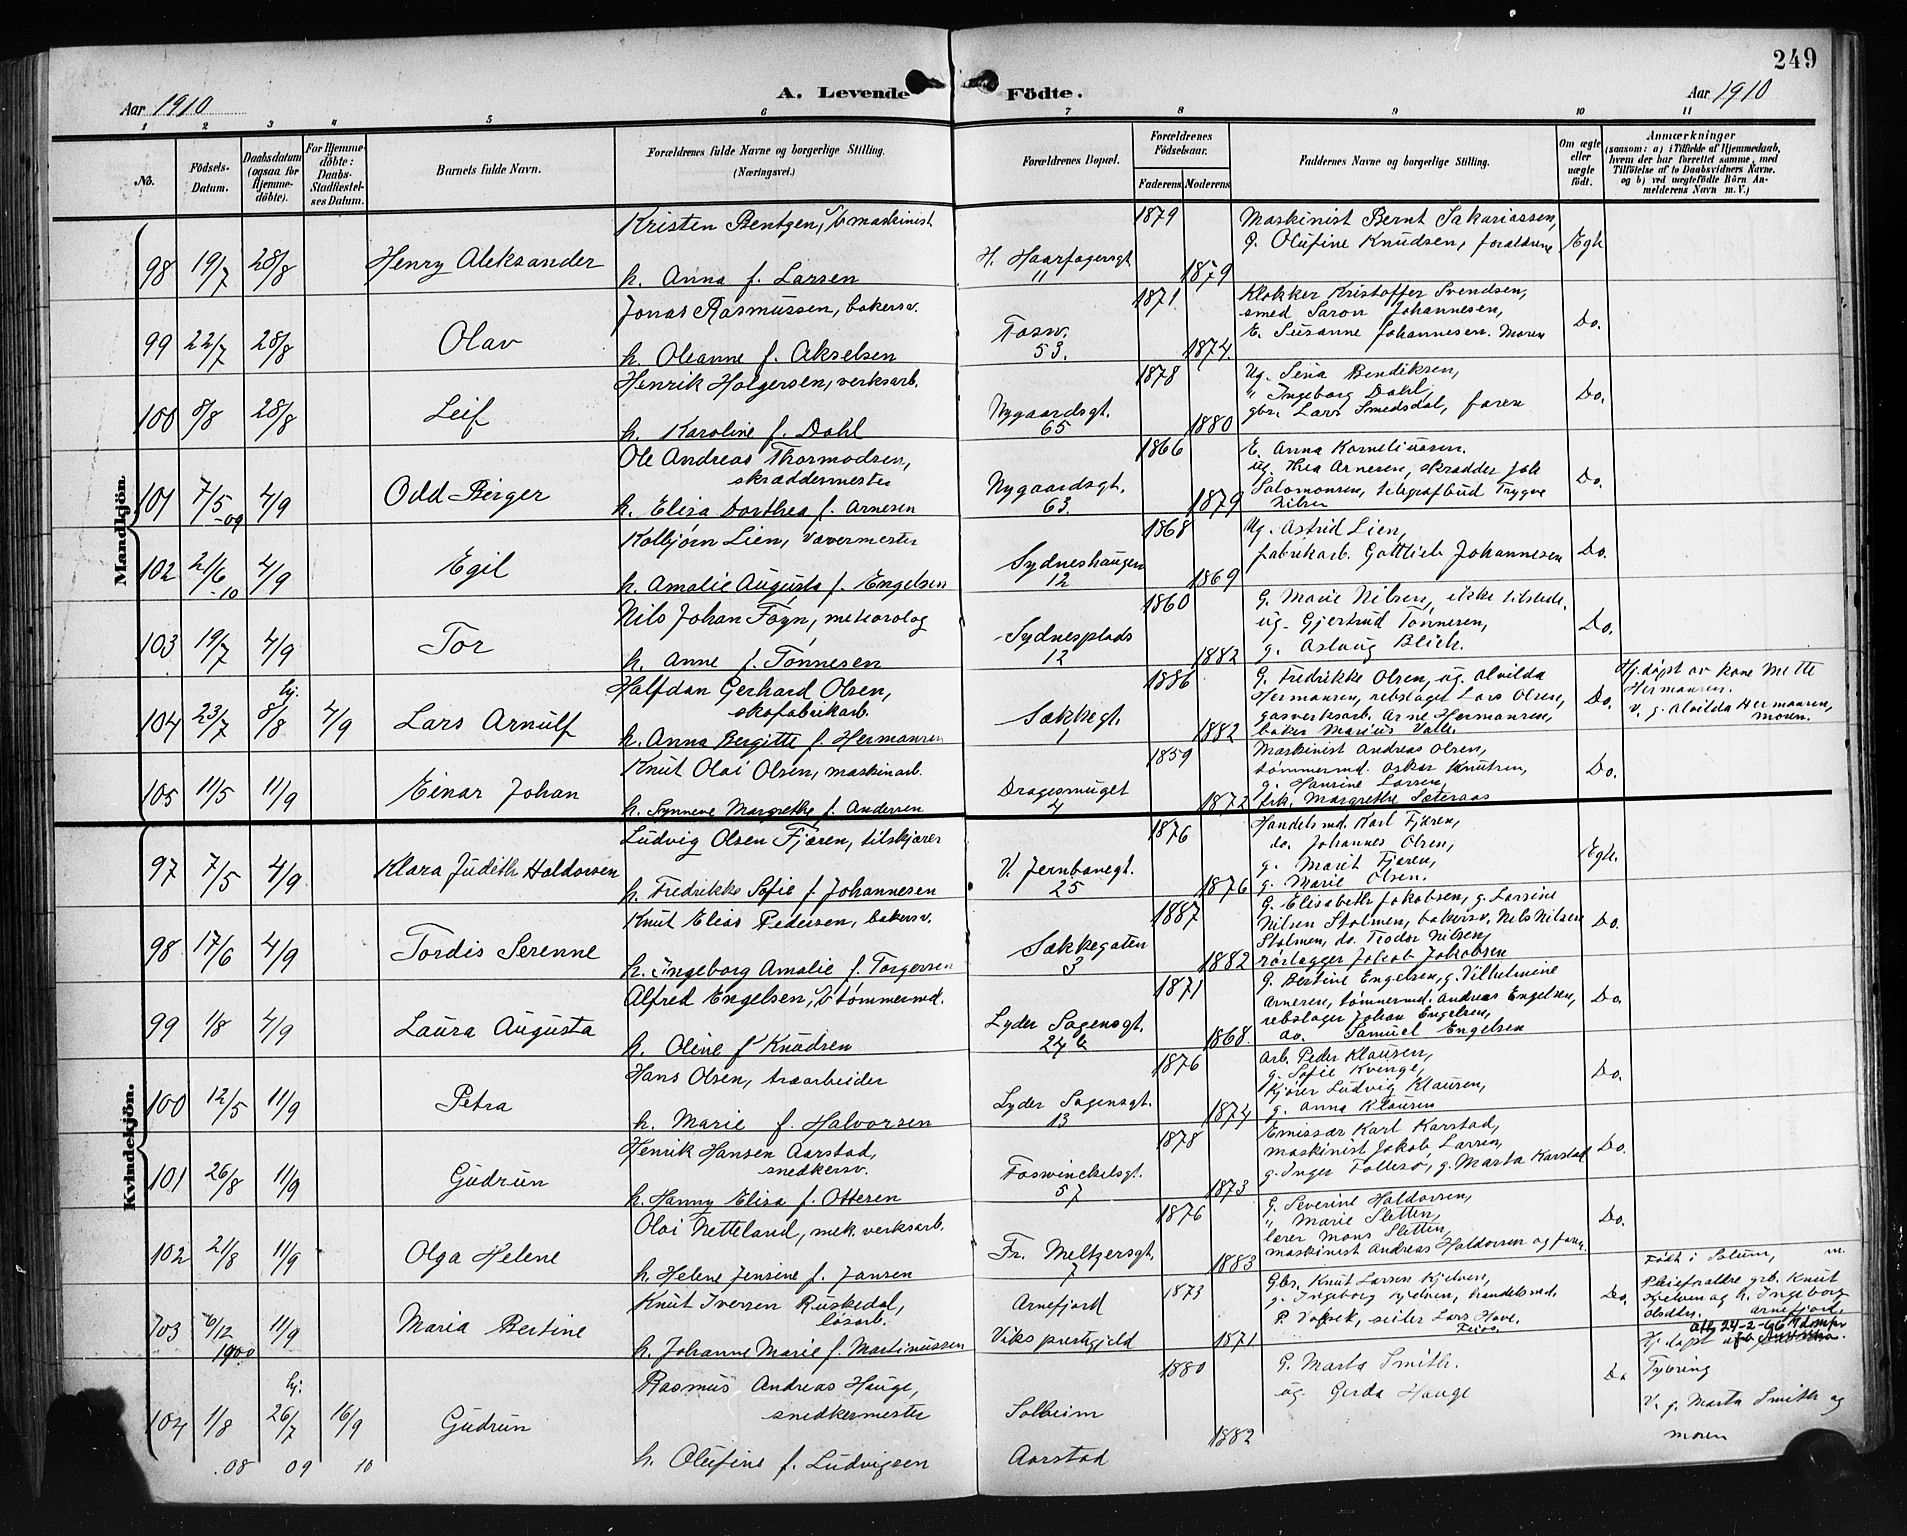 249
Aar 1910
A. Levende Födte.
Aar 1910
1 2 3 4 5 6 7 8 9 10 11
No.
Födsels-Datum.
Daabsdatum (ogsaa for Hjemme-döbte).
For Hjemme-döbte: Daabs-Stadfæstel-ses Datum.
Barnets fulde Navn.
Forældrenes fulde Navne og borgerlige Stilling. (Næringsvei.)
Forældrenes Bopæl.
Forældrenes Födselsaar.
Faderens Moderens
Faddernes Navne og borgerlige Stilling.
Om ægte eller uægte födt.
Anmærkninger
(saasom: a) i Tilfælde af Hjemmedaab, hvem der har forrettet samme, med Tilföielse af to Daabsvidners Navne, og b) ved uægtefödte Börn An-melderens Navn m. V.)
Mandkjön.
98 19/7 28/8 Henry Aleksander
Kristen Bentzen, maskinist
h. Anna f. Larsen
H. Haarfagersgt 11
1879 1879
Maskinist Bernt Sakariassen,
G. Olufine Knudsen, forældrene
Egte
99 22/7 28/8 Olav
Jonas Rasmussen, bakersv.
h. Oleanne f. Akselsen
Fosw. 53.
1871. 1874.
Klokker Kristoffer Svendsen,
smed Saron Johannesen,
E. Susanne Johannesen. Moren
Do.
100 8/8 28/8 Leif
Henrik Holgersen, verksarb.
h. Karoline f. Dahl
Nygaardsgt. 65
1878 1880
Ug. Sena Bendiksen,
" Ingeborg Dahl,
gbr. Lars Smedsdal, faren
Do.
101 7/5 -09 4/9 Odd Birger
Ole Andreas Thormodsen,
skræddermester
h. Elisa Dorthea f. Arnesen
Nygaardsgt. 63.
1866 1879
E. Anna Korneliussen.
ug. Thea Arnesen, skrædder
Salomonsen, telegrafbud Trygve
Nilsen
Do.
102 21/6 -10 4/9 Egil
Kolbjørn Lien, vævermester
h. Amalie Augusta f. Engelsen
Sydneshaugen 12
1868 1869
Ug. Astrid Lien,
fabrikarb. Gottlieb Johannesen
Do.
103 19/7 4/9 Tor
Nils Johan Føyn, meteorolog
h. Anne f. Tønnesen
Sydnesplads 12
1860 1882
G. Marie Nilsen, ikke tilstede.
ug. Gjertrud Tønnesen,
g. Aslaug Blich.
Do.
104 23/7 hj. 8/8 4/9 Lars Arnulf
Halfdan Gerhard Olsen,
skofabrikarb.
h. Anna Bergitte f. Hermansen
Sækkegt. 1
1886 1882
G. Fredrikke Olsen, ug. Alvilda
Hermansen, rebslager Lars Olsen,
gasverksarb. Arne Hermansen,
baker Marius Valle.
Do.
Hj. døpt av kone Mette
Hermansen.
V. g. Alvilda Hermansen,
moren.
105 11/5 11/9 Einar Johan
Knut Olai Olsen, maskinarb.
h. Synneve Margrethe f. Andersen
Dragesmuget 4
1859 1872
Maskinist Andreas Olsen,
tømmermd. Oskar Knutsen,
g. Hansine Larsen,
frk. Margrethe Sæteraas
Do.
Kvindekjön.
97 7/5 4/9 Klara Judith Haldorsen
Ludvig Olsen Fjæren, tilskjærer
h. Fredrikke Sofie f. Johannesen
V. Jernbanegt. 25
1876 1876
Handelsmd. Karl Fjæren,
do. Johannes Olsen,
g. Marit Fjæren,
g. Marie Olsen.
Egte.
98 17/6 4/9 Tordis Serenne
Knut Elias Pedersen, bakersv.
h. Ingeborg Amalie f. Torgersen
Sækkegaten 3
1887 1882
G. Elisabeth Jakobsen, g. Larsine
Nilsen Stolmen, bakersv. Nils Nilsen
Stolmen, do. Teodor Nilsen,
rørlægger Jakob Jakobsen
Do.
99 1/8 4/9 Laura Augusta
Alfred Engelsen, tømmermd.
h. Oline f Knudsen
Lyder Sagensgt. 24 b
1871 1868.
G. Bertine Engelsen, g. Vilhelmine
Arnesen, tømmermd. Andreas Engelsen,
rebslager Johan Engelsen,
do. Samuel Engelsen
Do.
100 12/5 11/9 Petra
Hans Olsen, træarbeider
h. Marie f. Halvorsen
Lyder Sagensgt. 13
1876 1874
Arb. Peder Klausen,
g. Sofie Kvinge,
kjører Ludvig Klausen,
g. Anna Klausen
Do.
101 26/8 11/9 Gudrun
Henrik Hansen Aarstad,
snedkersv.
h. Hanny Elisa f. Ottesen
Foswinckelsgt. 57
1878 1873
Emissær Karl Karstad,
maskinist Jakob Larsen,
g. Inger Follesø, g. Marta Karstad
Do.
102 21/8 11/9 Olga Helene
Olai Netteland, mek. verksarb.
h. Helene Jensine f. Jansen
Fr. Meltzersgt. 7
1876 1883
G. Severine Haldorsen,
" Marie Sletten,
lærer Mons Sletten,
maskinist Andreas Haldorsen og faren.
Do.
103 /12 1900 11/9 Maria Bertine
Knut Iversen Ruskedal,
løsarb.
h. Johanne Marie f. Martinussen
Arnefjord
Viks prestegjeld
1873 1871
Gbr. Knut Larsen Kjelven,
g. Ingeborg Kjelven, handelsmd.
P. Vøsek, seiler Lars Hove,
Feios.
Do.
Født i Solum,
Pleieforældre grb. Knut
Kjelven og h. Ingeborg
Olsdtr. Arnefjord.
104 1/8 08 hj. 26/7 09 16/9 10 Gudrun
Rasmus Andreas Hauge,
snedkermester
h. Olufine f. Ludvigsen
Solheim
Aarstad
1880 1882
G. Marta Smith.
ug. Gerda Hauge
Do
Hj. døpt af
V. g. Marta Smith og
moren